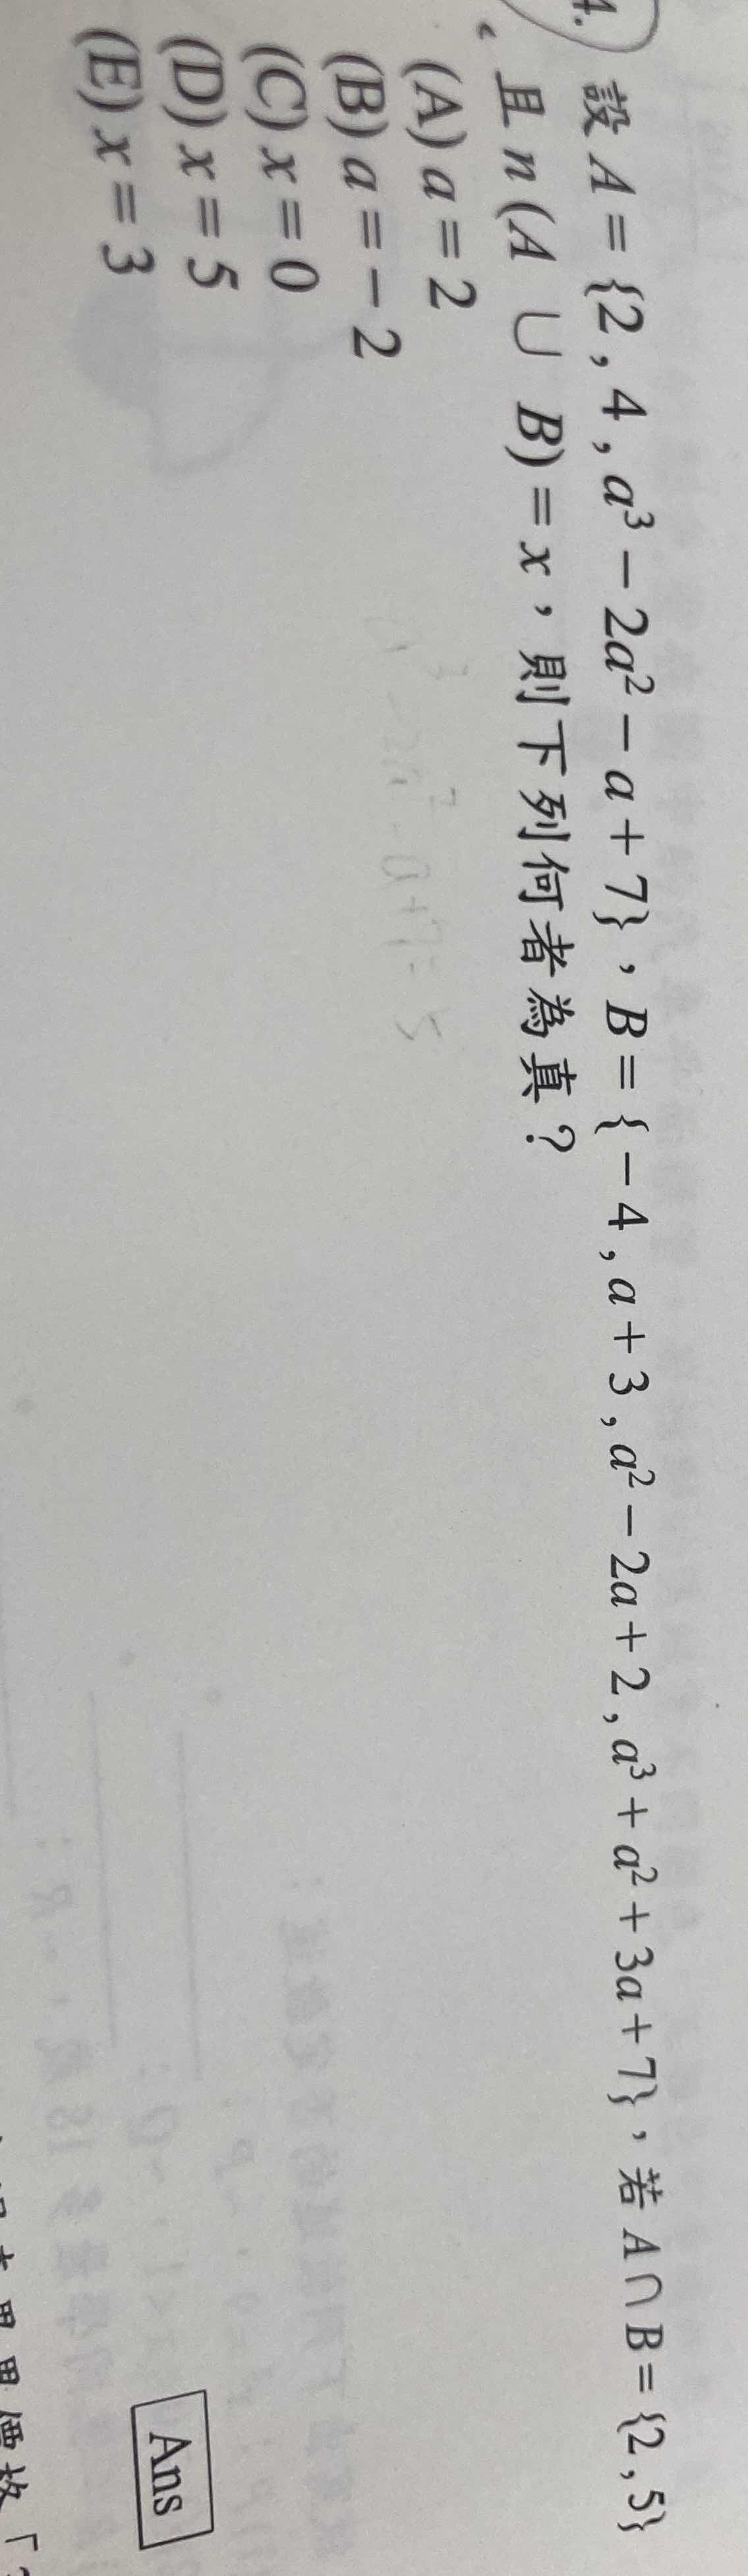 4. 設 A = {2 , 4 , a³ − 2a² − a + 7}，B = { − 4 , a + 3 , a² − 2a + 2 , a³ + a² + 3a + 7}，若 A ∩ B = {2 , 5}
，且 n (A ∪ B) = x，則下列何者為真？
(A) a = 2
(B) a = − 2
(C) x = 0
(D) x = 5
(E) x = 3
a³ − 2a² − a + 7 = 5
Ans